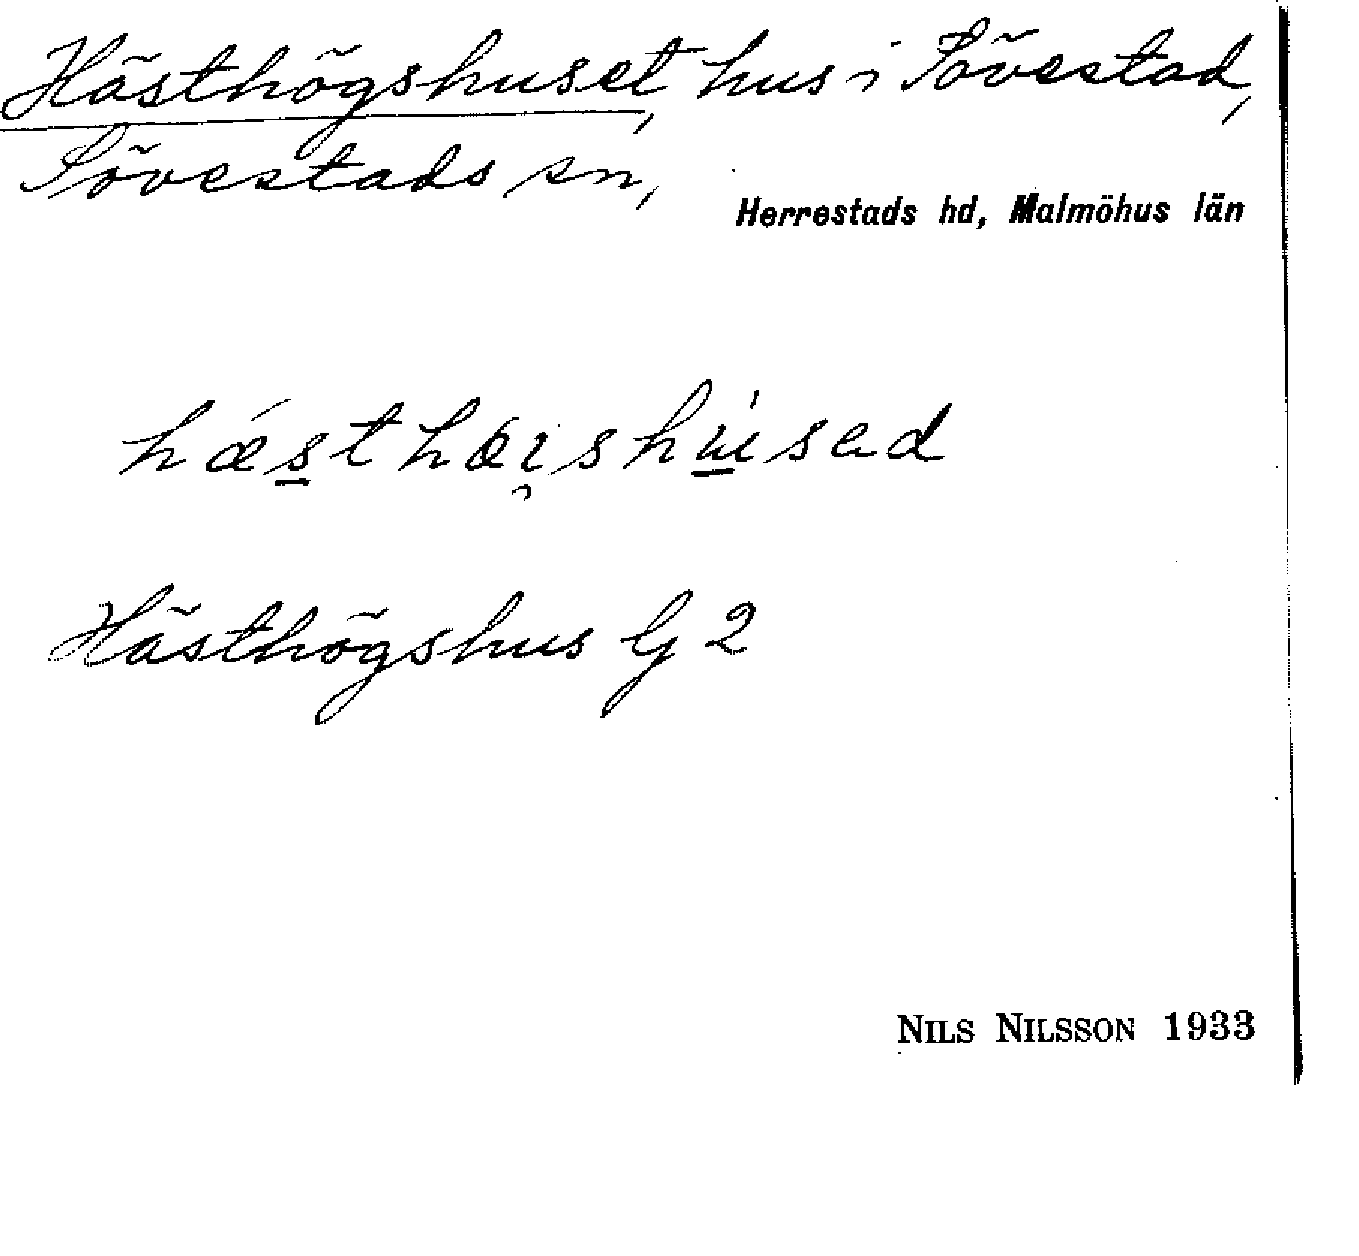 Hästhögshuset, hus i Sövestad,
Sövestads sn,
Herrestads hd, Malmöhus län
Hästhögshus G 2
NILS NILSSON 1933